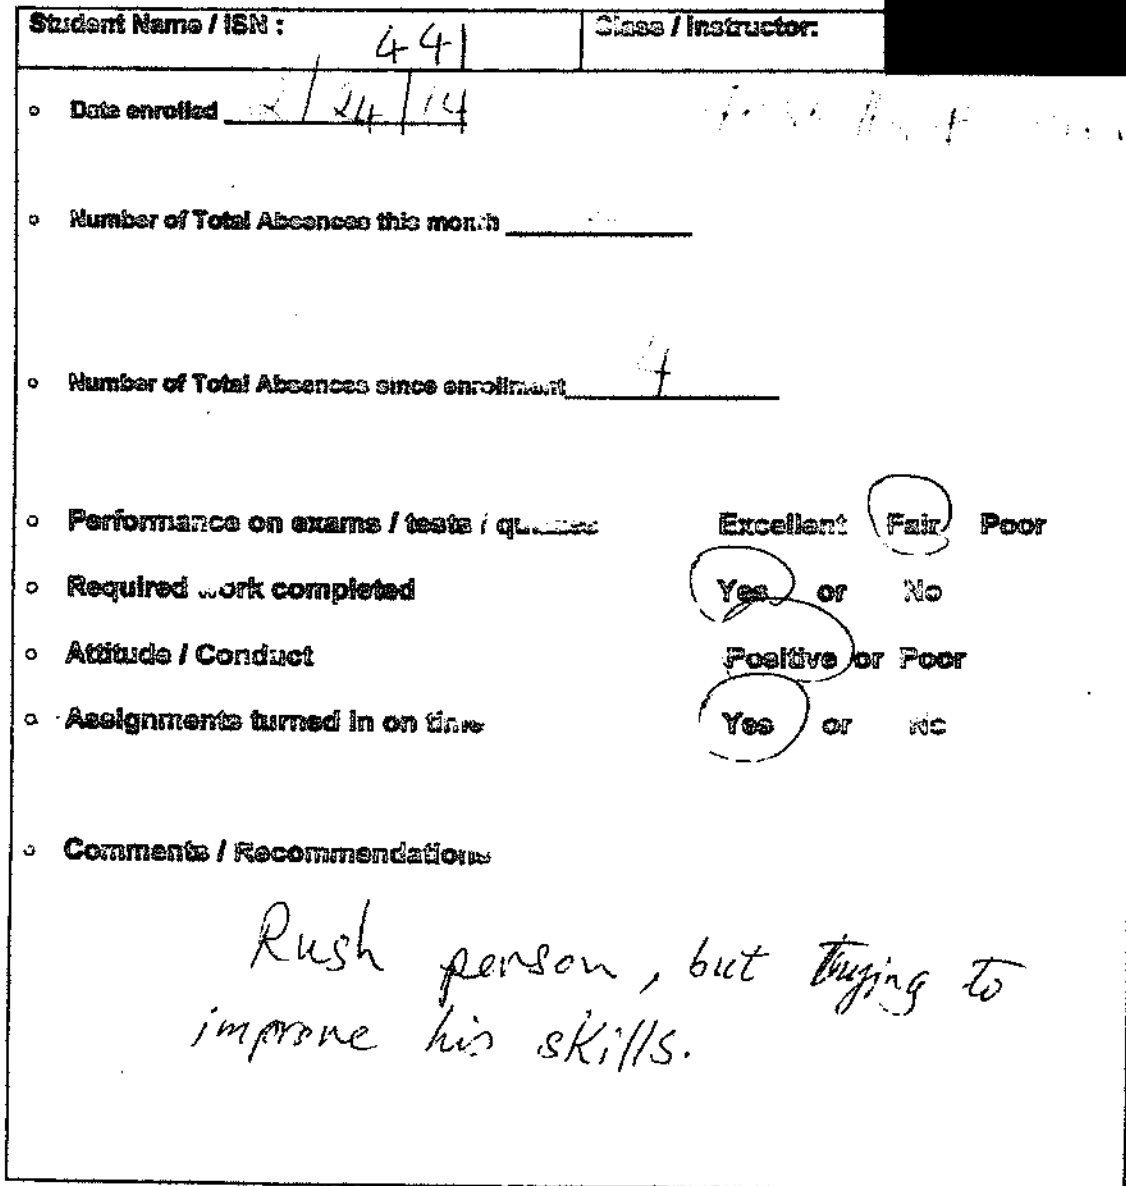 Student Name / ISN : 441 Class / Instructor:
Date enrolled 2/24/14
Number of Total Absences this month
Number of Total Absences since enrollment 4
Performance on exams / tests / quizzes Excellent Fair Poor
Required work completed Yes or No
Attitude / Conduct Positive or Poor
Assignments turned in on time Yes or No
Comments / Recommendations
Rush person, but trying to
improve his skills.